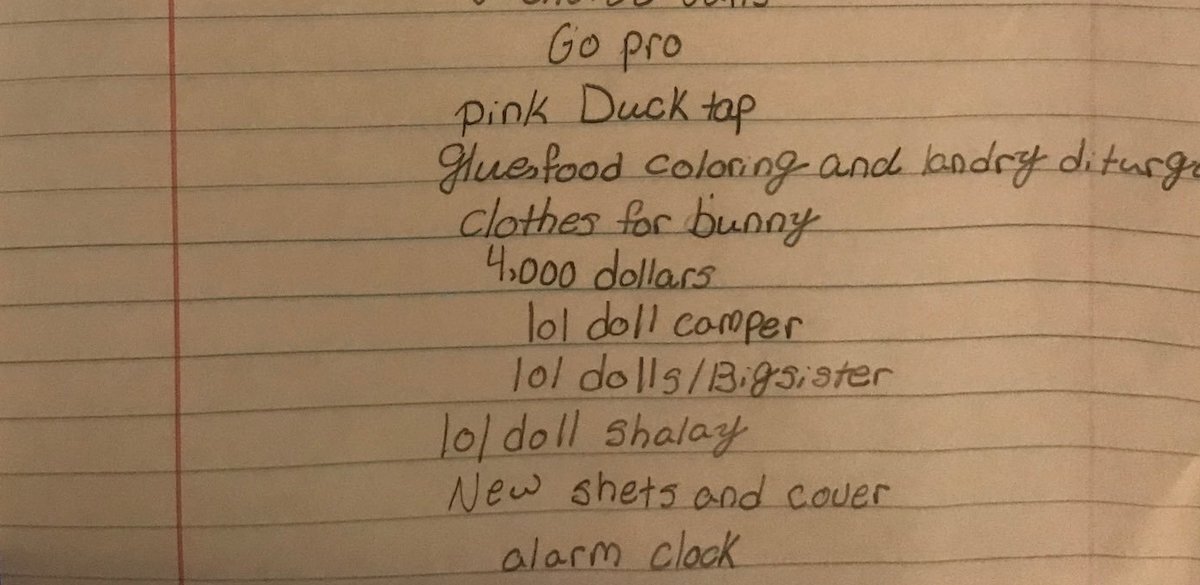 Go pro
pink Duck tap
glue,food coloring and landry diturg
clothes for bunny
4,000 dollars
lol doll camper
lol dolls/Bigsister
lol doll shalay
New shets and cover
alarm clock